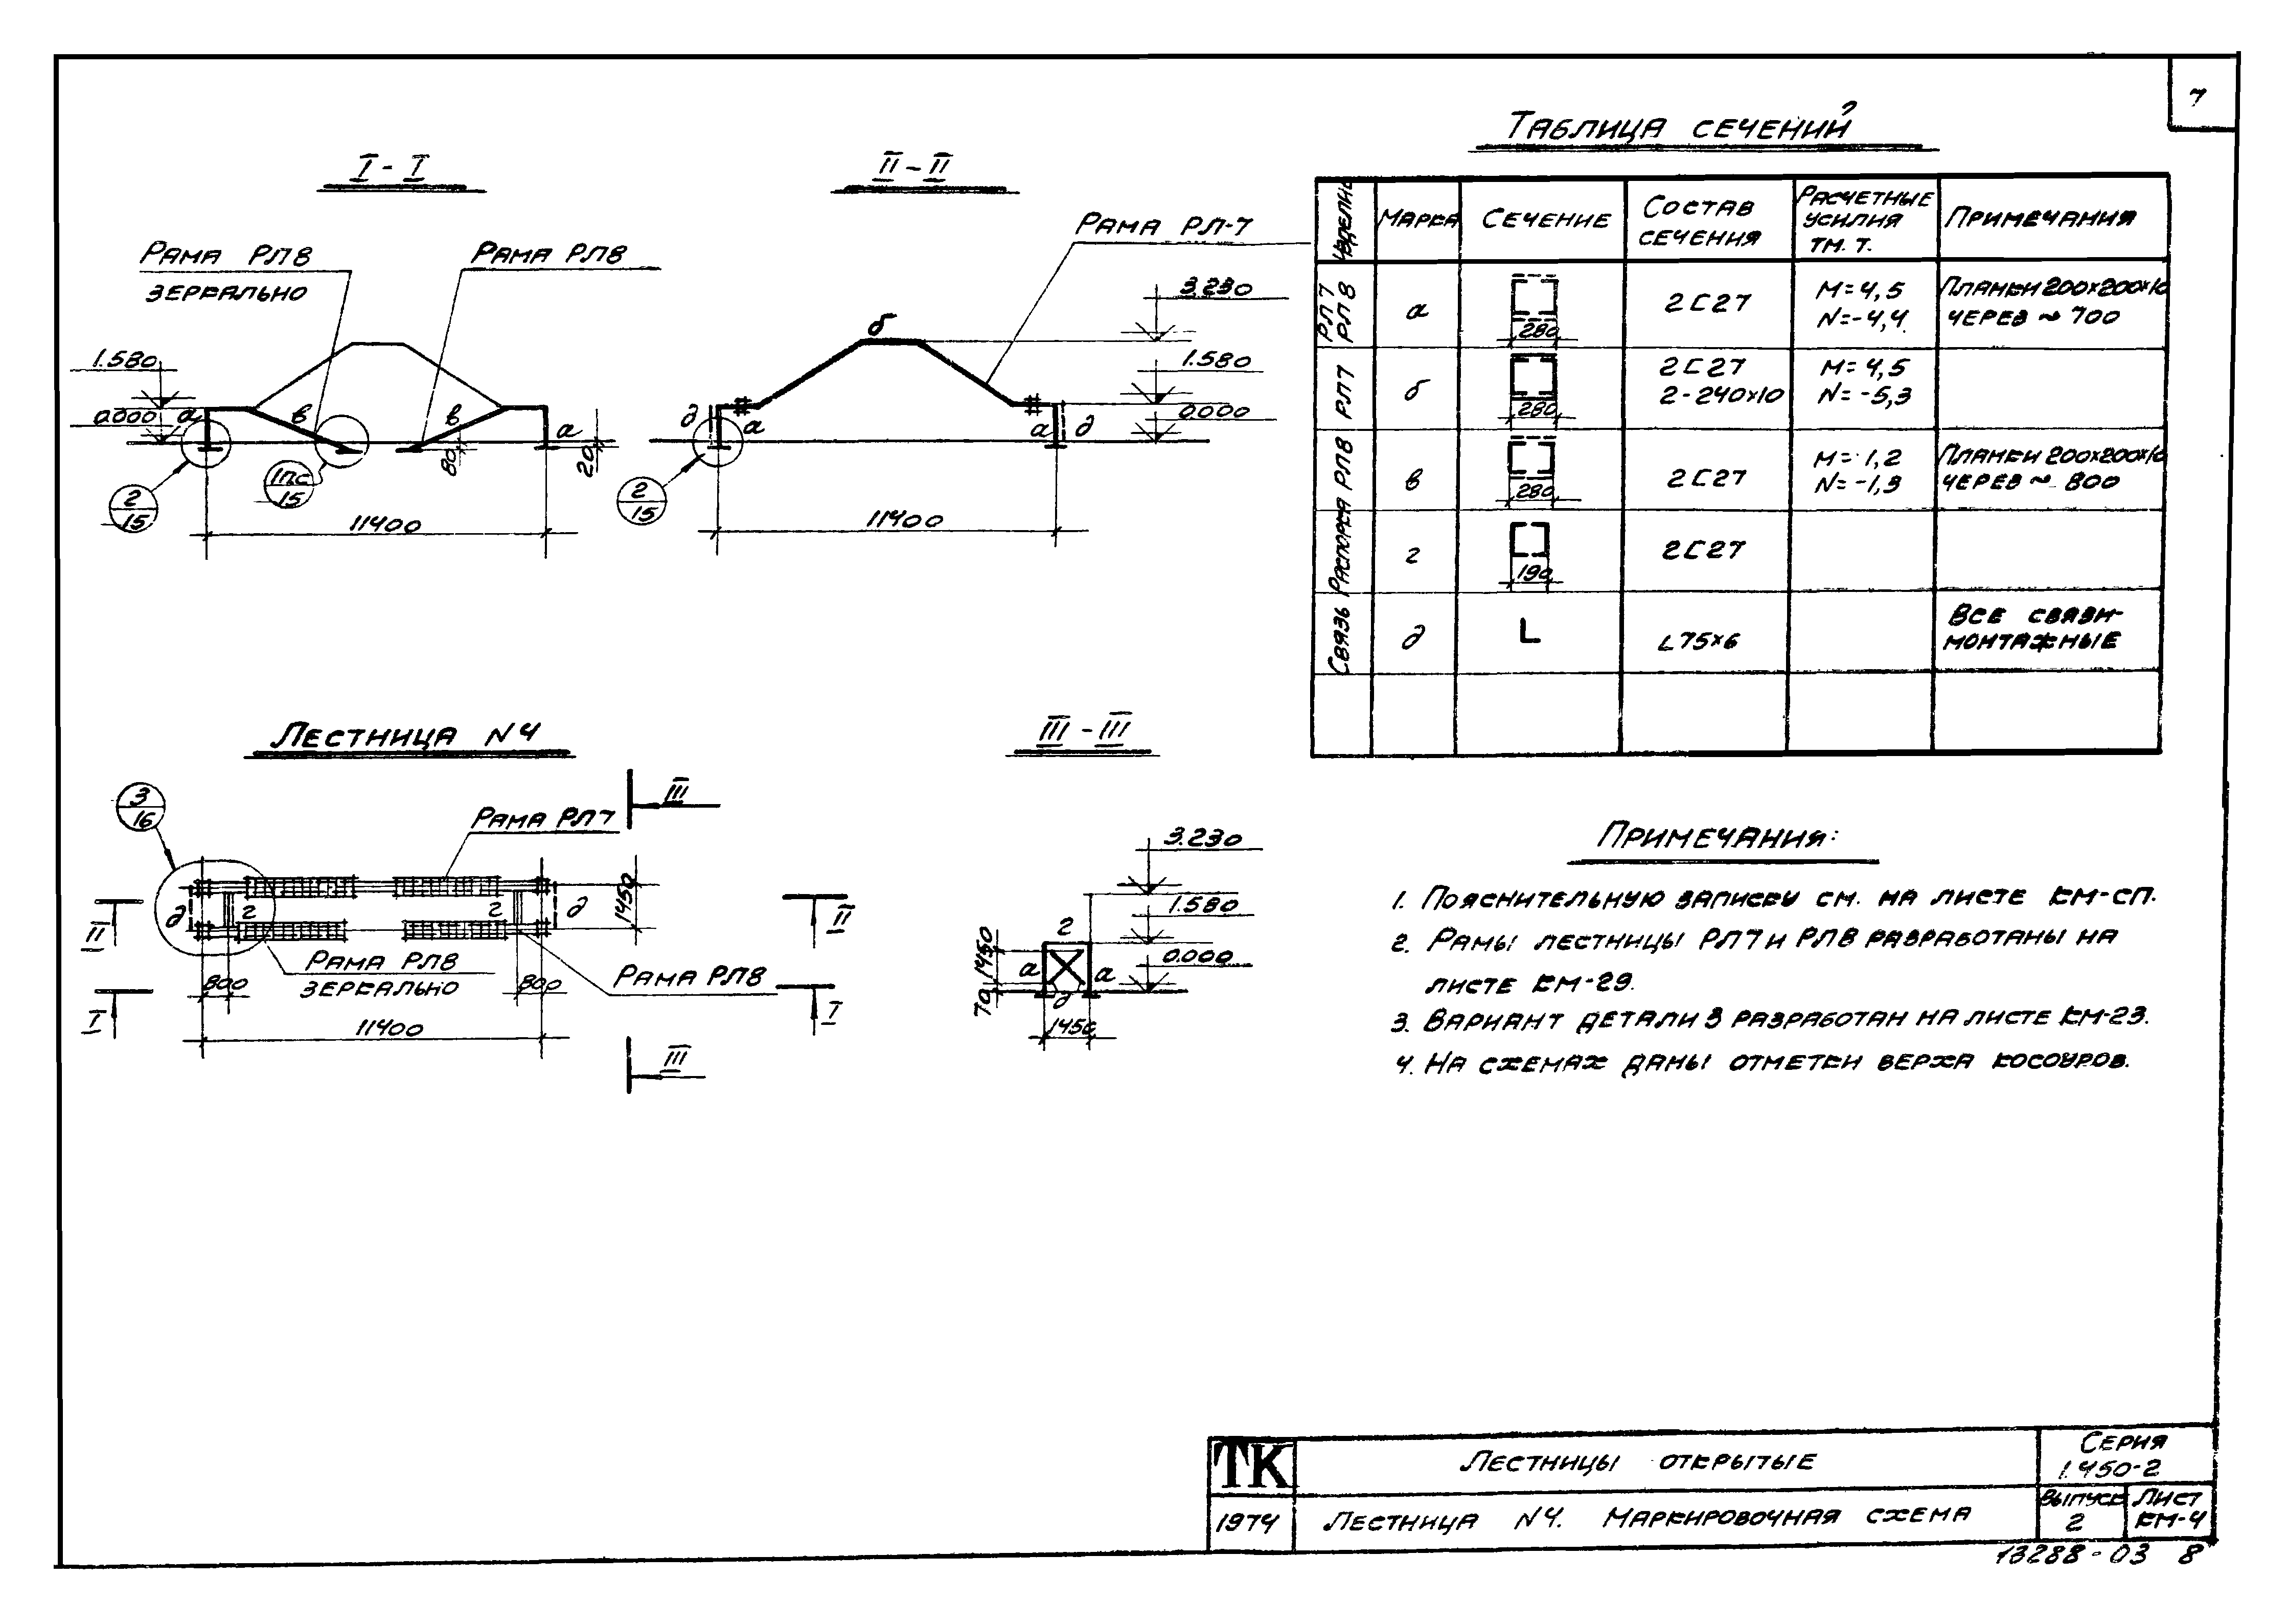 7
I - I
Рама РЛ8
зеркально
Рама РЛ8
1.580
0.000
а
в
в
а
80
20
2
15
1пс
15
11400
II - II
Рама РЛ-7
3.230
1.580
0.000
б
д
а
а
д
2
15
11400
Таблица сечений
Изделие
Марка
Сечение
Состав
сечения
Расчетные
усилия
тм. т.
Примечания
РЛ7
РЛ8
а
280
2С27
М=4,5
N=-4,4
Планки 200×200×10
через ~ 700
РЛ7
б
280
2С27
2-240×10
М=4,5
N=-5,3
РЛ8
в
280
2С27
М=1,2
N=-1,3
Планки 200×200×10
через ~ 800
Распорка
г
190
2С27
Связь
д
L
L75×6
Все связи-
монтажные
Лестница N4
3
16
III
Рама РЛ7
д
г
г
д
1450
II
II
Рама РЛ8
зеркально
Рама РЛ8
800
800
I
I
11400
III
III - III
3.230
1.580
0.000
г
а
а
д
1450
70
1450
Примечания:
1. Пояснительную записку см. на листе КМ-СП.
2. Рамы лестницы РЛ7 и РЛ8 разработаны на
листе КМ-29.
3. Вариант детали 3 разработан на листе КМ-23.
4. На схемах даны отметки верха косоуров.
ТК
Лестницы открытые
Серия
1.450-2
1974
Лестница N4. Маркировочная схема
Выпуск
2
Лист
КМ-4
13288-03 8